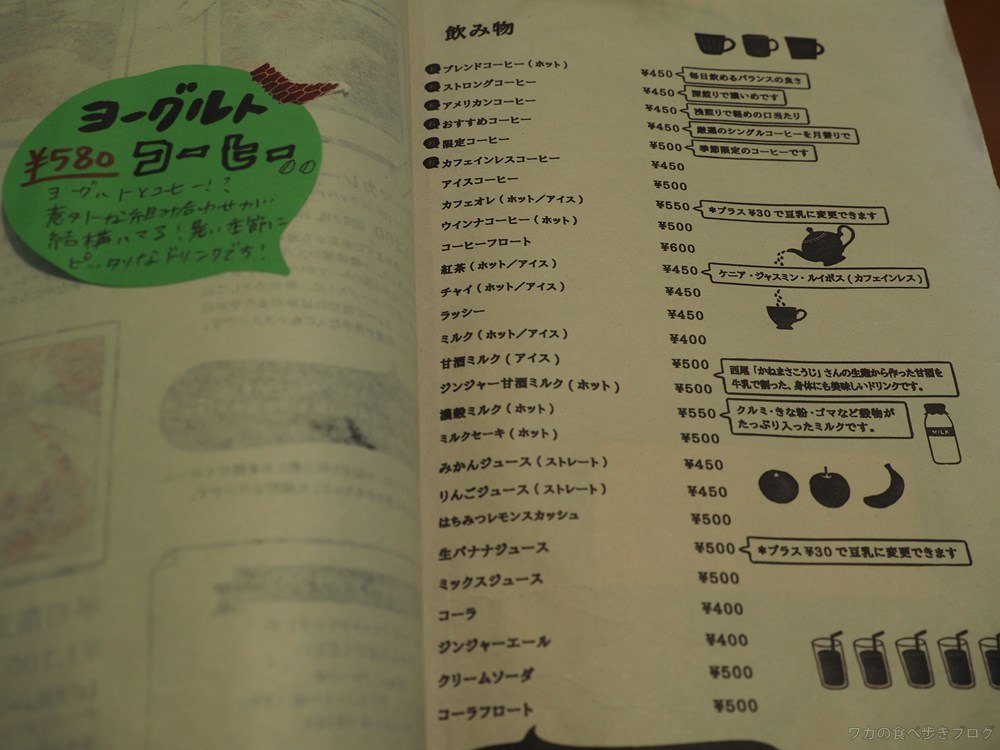 ヨーグルト
¥580 コーヒー
ヨーグルトとコーヒー!?
意外な組み合わせが
結構いてる!暑い季節に
ピッタリなドリンクです!
飲み物
ブレンドコーヒー(ホット) ¥450 毎日飲めるバランスの良さ
ストロングコーヒー ¥450 深煎りで濃いめです
アメリカンコーヒー ¥450 浅煎りで軽めの口当たり
おすすめコーヒー ¥450 厳選のシングルコーヒーを月替りで
限定コーヒー ¥500 季節限定のコーヒーです
カフェインレスコーヒー ¥450
アイスコーヒー ¥500
カフェオレ(ホット/アイス) ¥550 *プラス¥30で豆乳に変更できます
ウインナコーヒー(ホット) ¥500
コーヒーフロート ¥600
紅茶(ホット/アイス) ¥450 ケニア・ジャスミン・ルイボス(カフェインレス)
チャイ(ホット/アイス) ¥450
ラッシー ¥450
ミルク(ホット/アイス) ¥400
甘酒ミルク(アイス) ¥500
ジンジャー甘酒ミルク(ホット) ¥500
西尾「かねまさこうじ」さんの生麹から作った甘酒を
牛乳で割った、身体にも美味しいドリンクです。
濃穀ミルク(ホット) ¥550
クルミ・きな粉・ゴマなど穀物が
たっぷり入ったミルクです。
MILK
ミルクセーキ(ホット) ¥500
みかんジュース(ストレート) ¥450
りんごジュース(ストレート) ¥450
はちみつレモンスカッシュ ¥500
生バナナジュース ¥500 *プラス¥30で豆乳に変更できます
ミックスジュース ¥500
コーラ ¥400
ジンジャーエール ¥400
クリームソーダ ¥500
コーラフロート ¥500
ワカの食べ歩きブログ